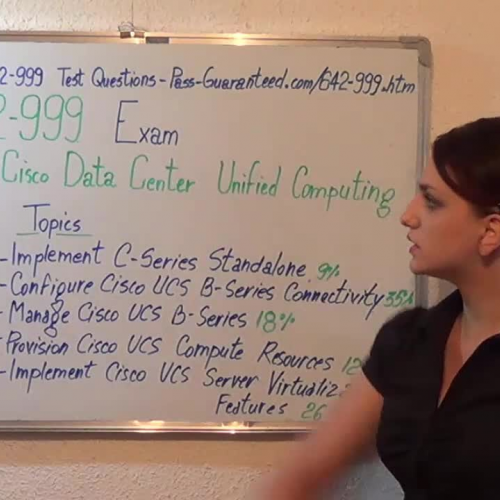 2-999 Test Questions - Pass-Guaranteed.com/642-999.htm
2-999 Exam
Cisco Data Center Unified Computing
Topics
- Implement C-Series Standalone 9%
- Configure Cisco UCS B-Series Connectivity 35%
- Manage Cisco UCS B-Series 18%
Provision Cisco UCS Compute Resources 12
- Implement Cisco UCS Server Virtualiz
Features 26